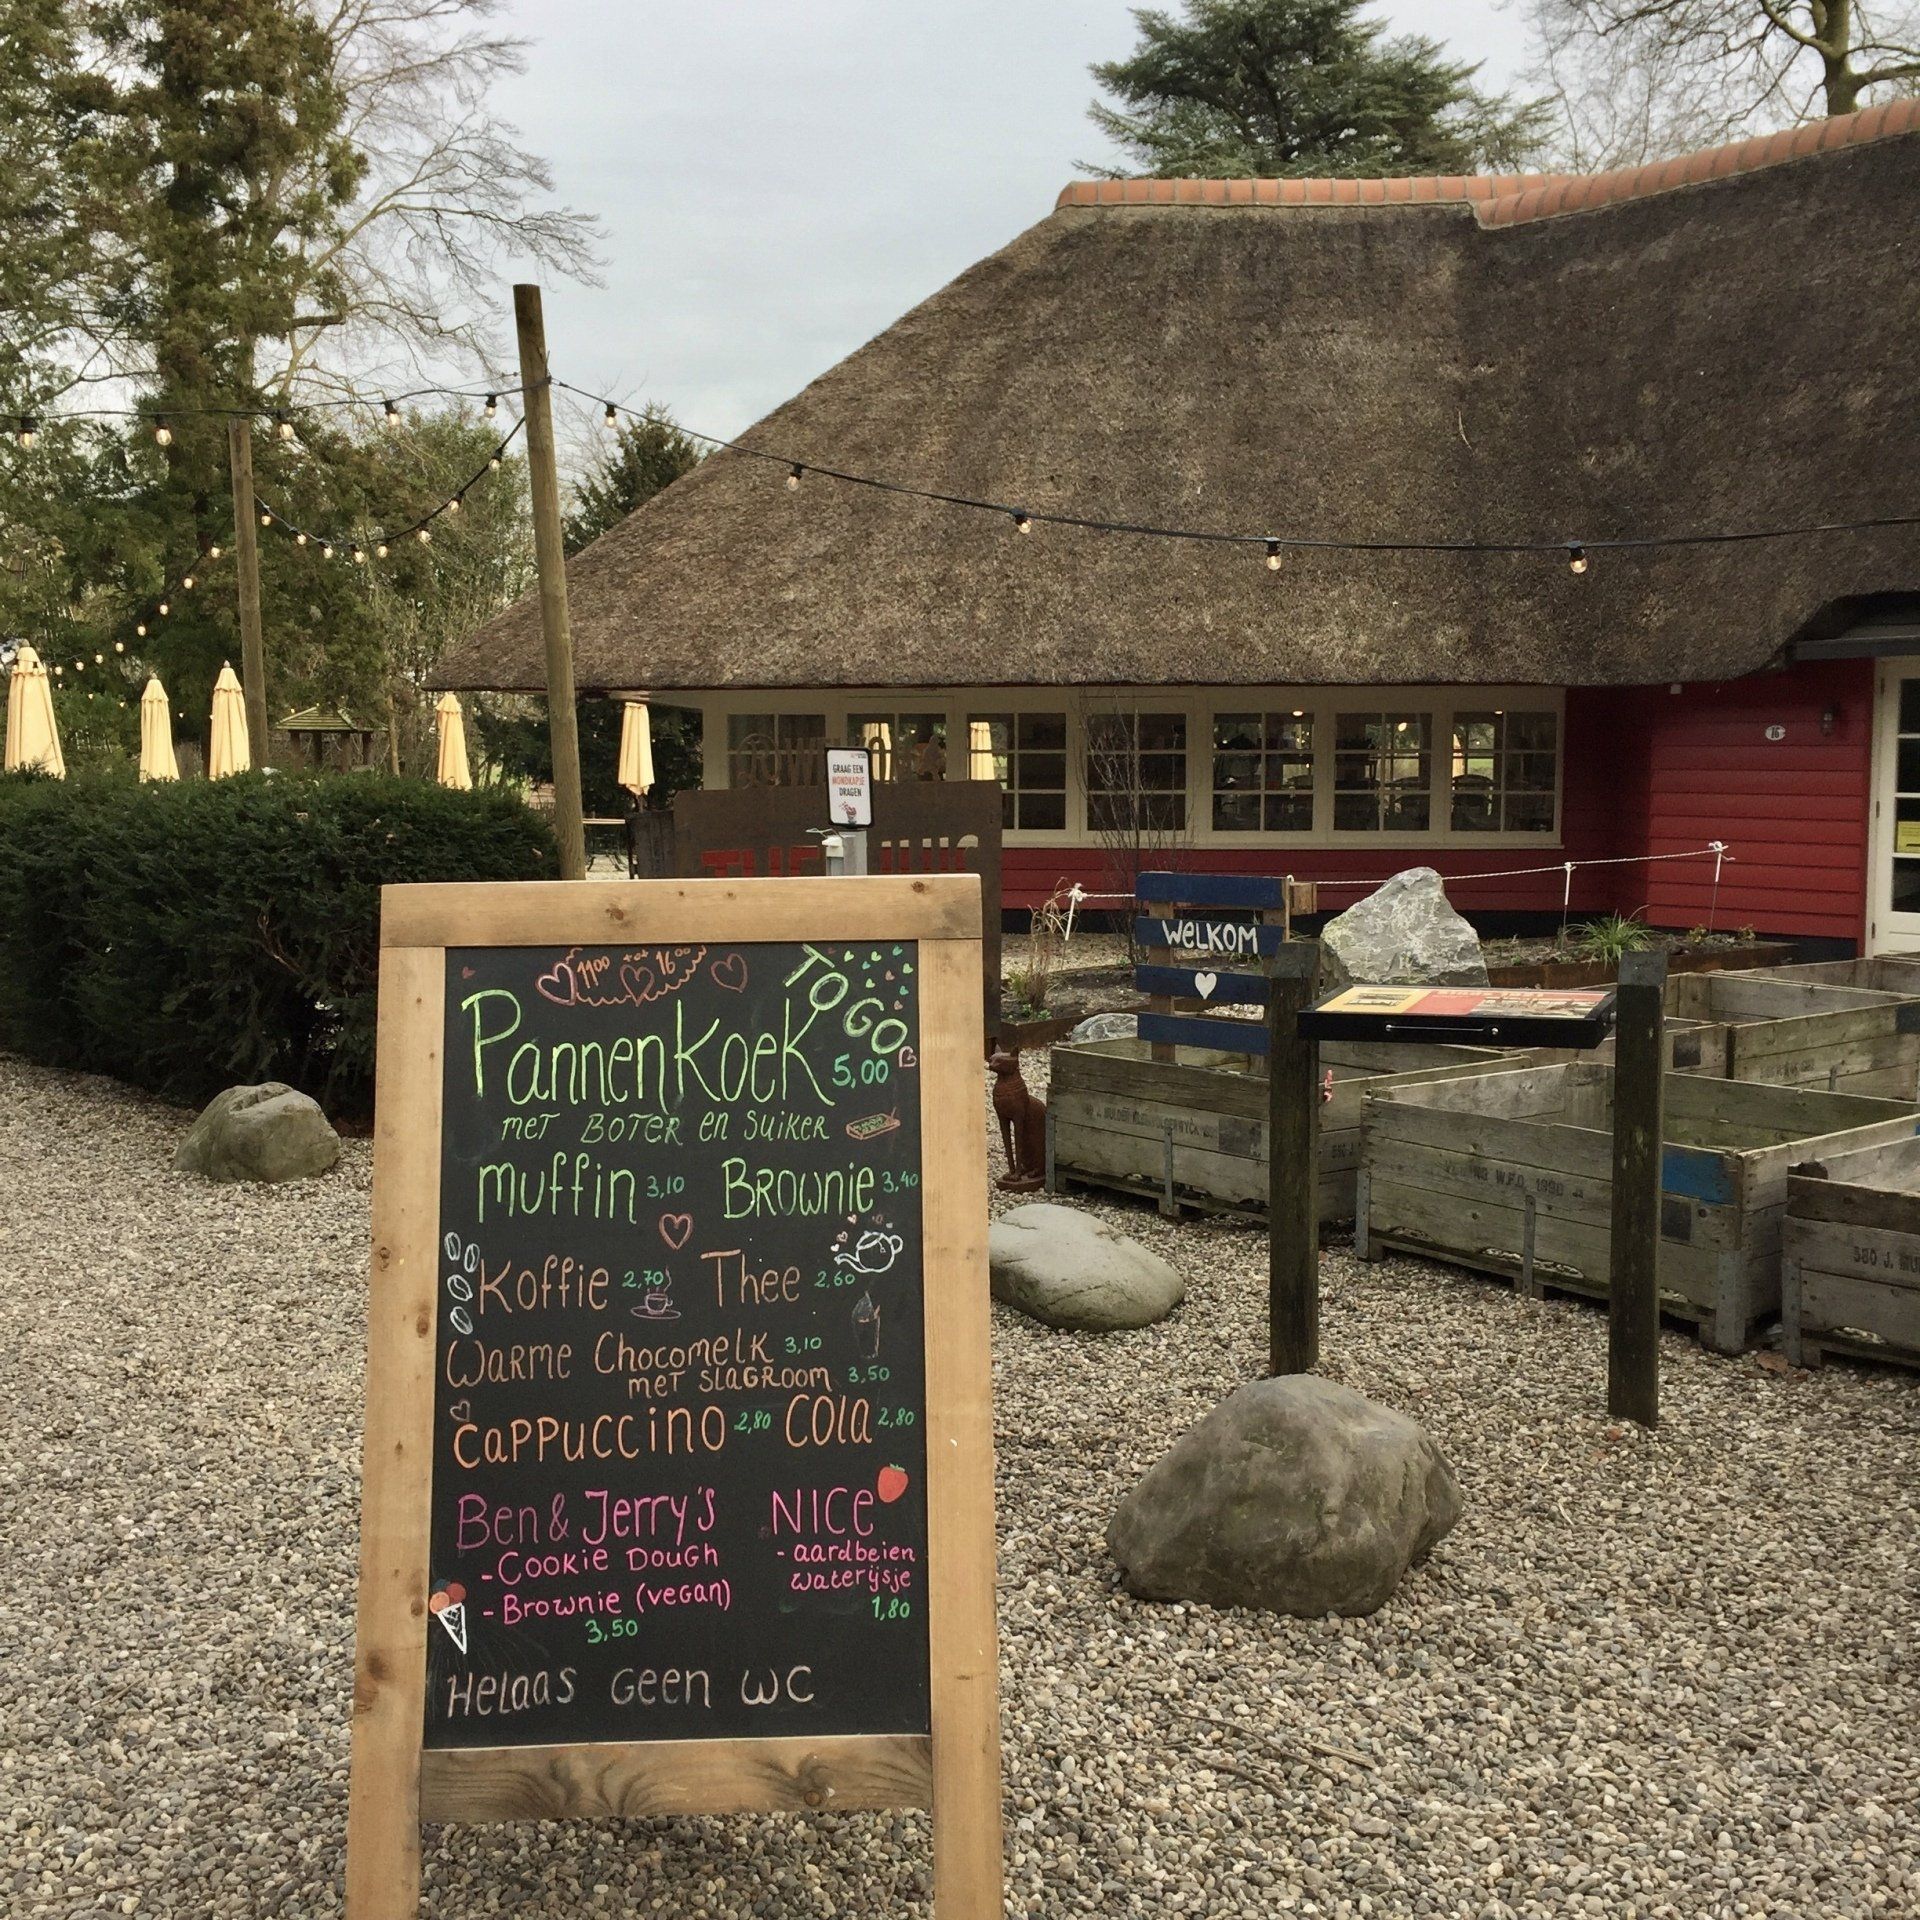 GRAAG EEN
MONDKAPJE
DRAGEN
WELKOM
16
11:00 tot 16:00
TO GO
Pannenkoek 5,00
met BOTER en suiker
muffin 3,10 BROWnie 3,40
Koffie 2,70 Thee 2,60
Warme Chocomelk 3,10
met slagroom 3,50
Cappuccino 2,80 Cola 2,80
Ben & Jerry's NICE
- Cookie Dough - aardbeien
- Brownie (vegan) waterijsje
3,50 1,80
Helaas Geen WC